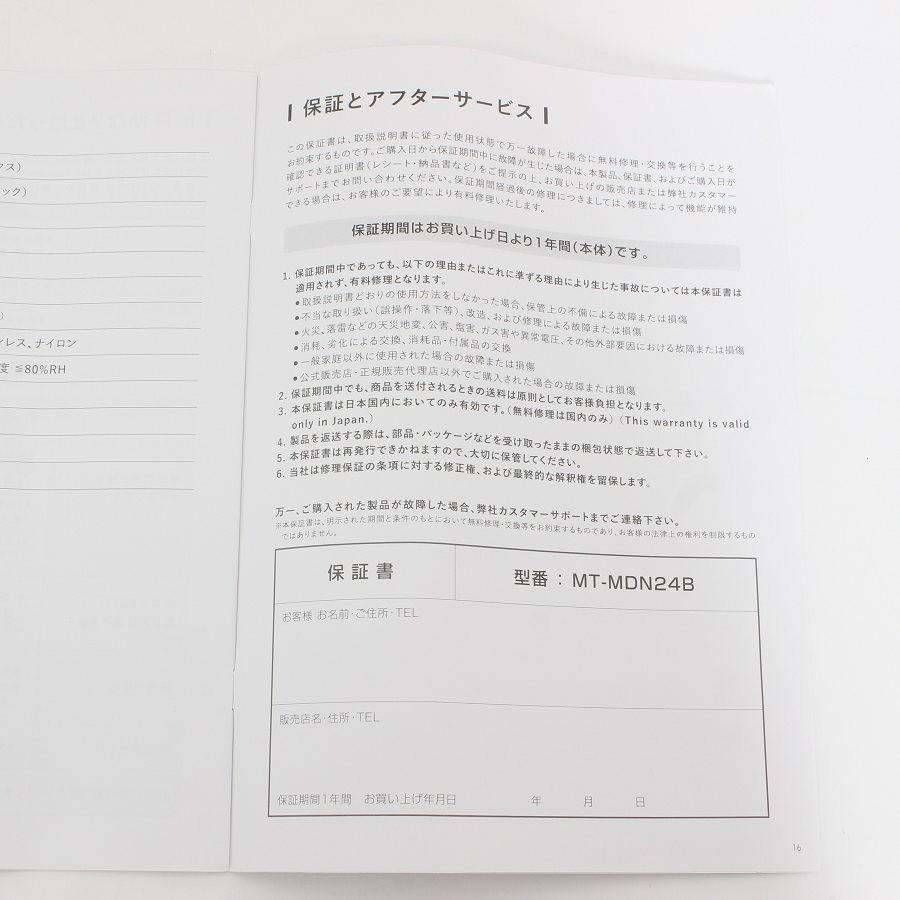 クス)
ック)
)
ンレス、ナイロン
度 ≦80%RH
保証とアフターサービス
この保証書は、取扱説明書に従った使用状態で万一故障した場合に無料修理・交換等を行うことを
お約束するものです。ご購入日から保証期間中に故障が生じた場合は、本製品、保証書、およびご購入日が
確認できる証明書(レシート・納品書など)をご提示の上、お買い上げの販売店または弊社カスタマー
サポートまでお問い合わせください。保証期間経過後の修理につきましては、修理によって機能が維持
できる場合は、お客様のご要望により有料修理いたします。
保証期間はお買い上げ日より1年間(本体)です。
1. 保証期間中であっても、以下の理由またはこれに準ずる理由により生じた事故については本保証書は
適用されず、有料修理となります。
●取扱説明書どおりの使用方法をしなかった場合、保管上の不備による故障または損傷
●不当な取り扱い(誤操作・落下等)、改造、および修理による故障または損傷
●火災、落雷などの天災地変、公害、塩害、ガス害や異常電圧、その他外部要因における故障または損傷
●消耗、劣化による交換、消耗品・付属品の交換
●一般家庭以外に使用された場合の故障または損傷
●公式販売店・正規販売代理店以外でご購入された場合の故障または損傷
2. 保証期間中でも、商品を送付されるときの送料は原則としてお客様負担となります。
3. 本保証書は日本国内においてのみ有効です。(無料修理は国内のみ) (This warranty is valid
only in Japan.)
4. 製品を返送する際は、部品・パッケージなどを受け取ったままの梱包状態で返送して下さい。
5. 本保証書は再発行できかねますので、大切に保管してください。
6. 当社は修理保証の条項に対する修正権、および最終的な解釈権を留保します。
万一、ご購入された製品が故障した場合、弊社カスタマーサポートまでご連絡下さい。
※本保証書は、明示された期間と条件のもとにおいて無料修理・交換等をお約束するものであり、お客様の法律上の権利を制限するもの
ではありません。
保証書
型番 : MT-MDN24B
お客様 お名前・ご住所・TEL
販売店名・住所・TEL
保証期間1年間 お買い上げ年月日 年 月 日
16